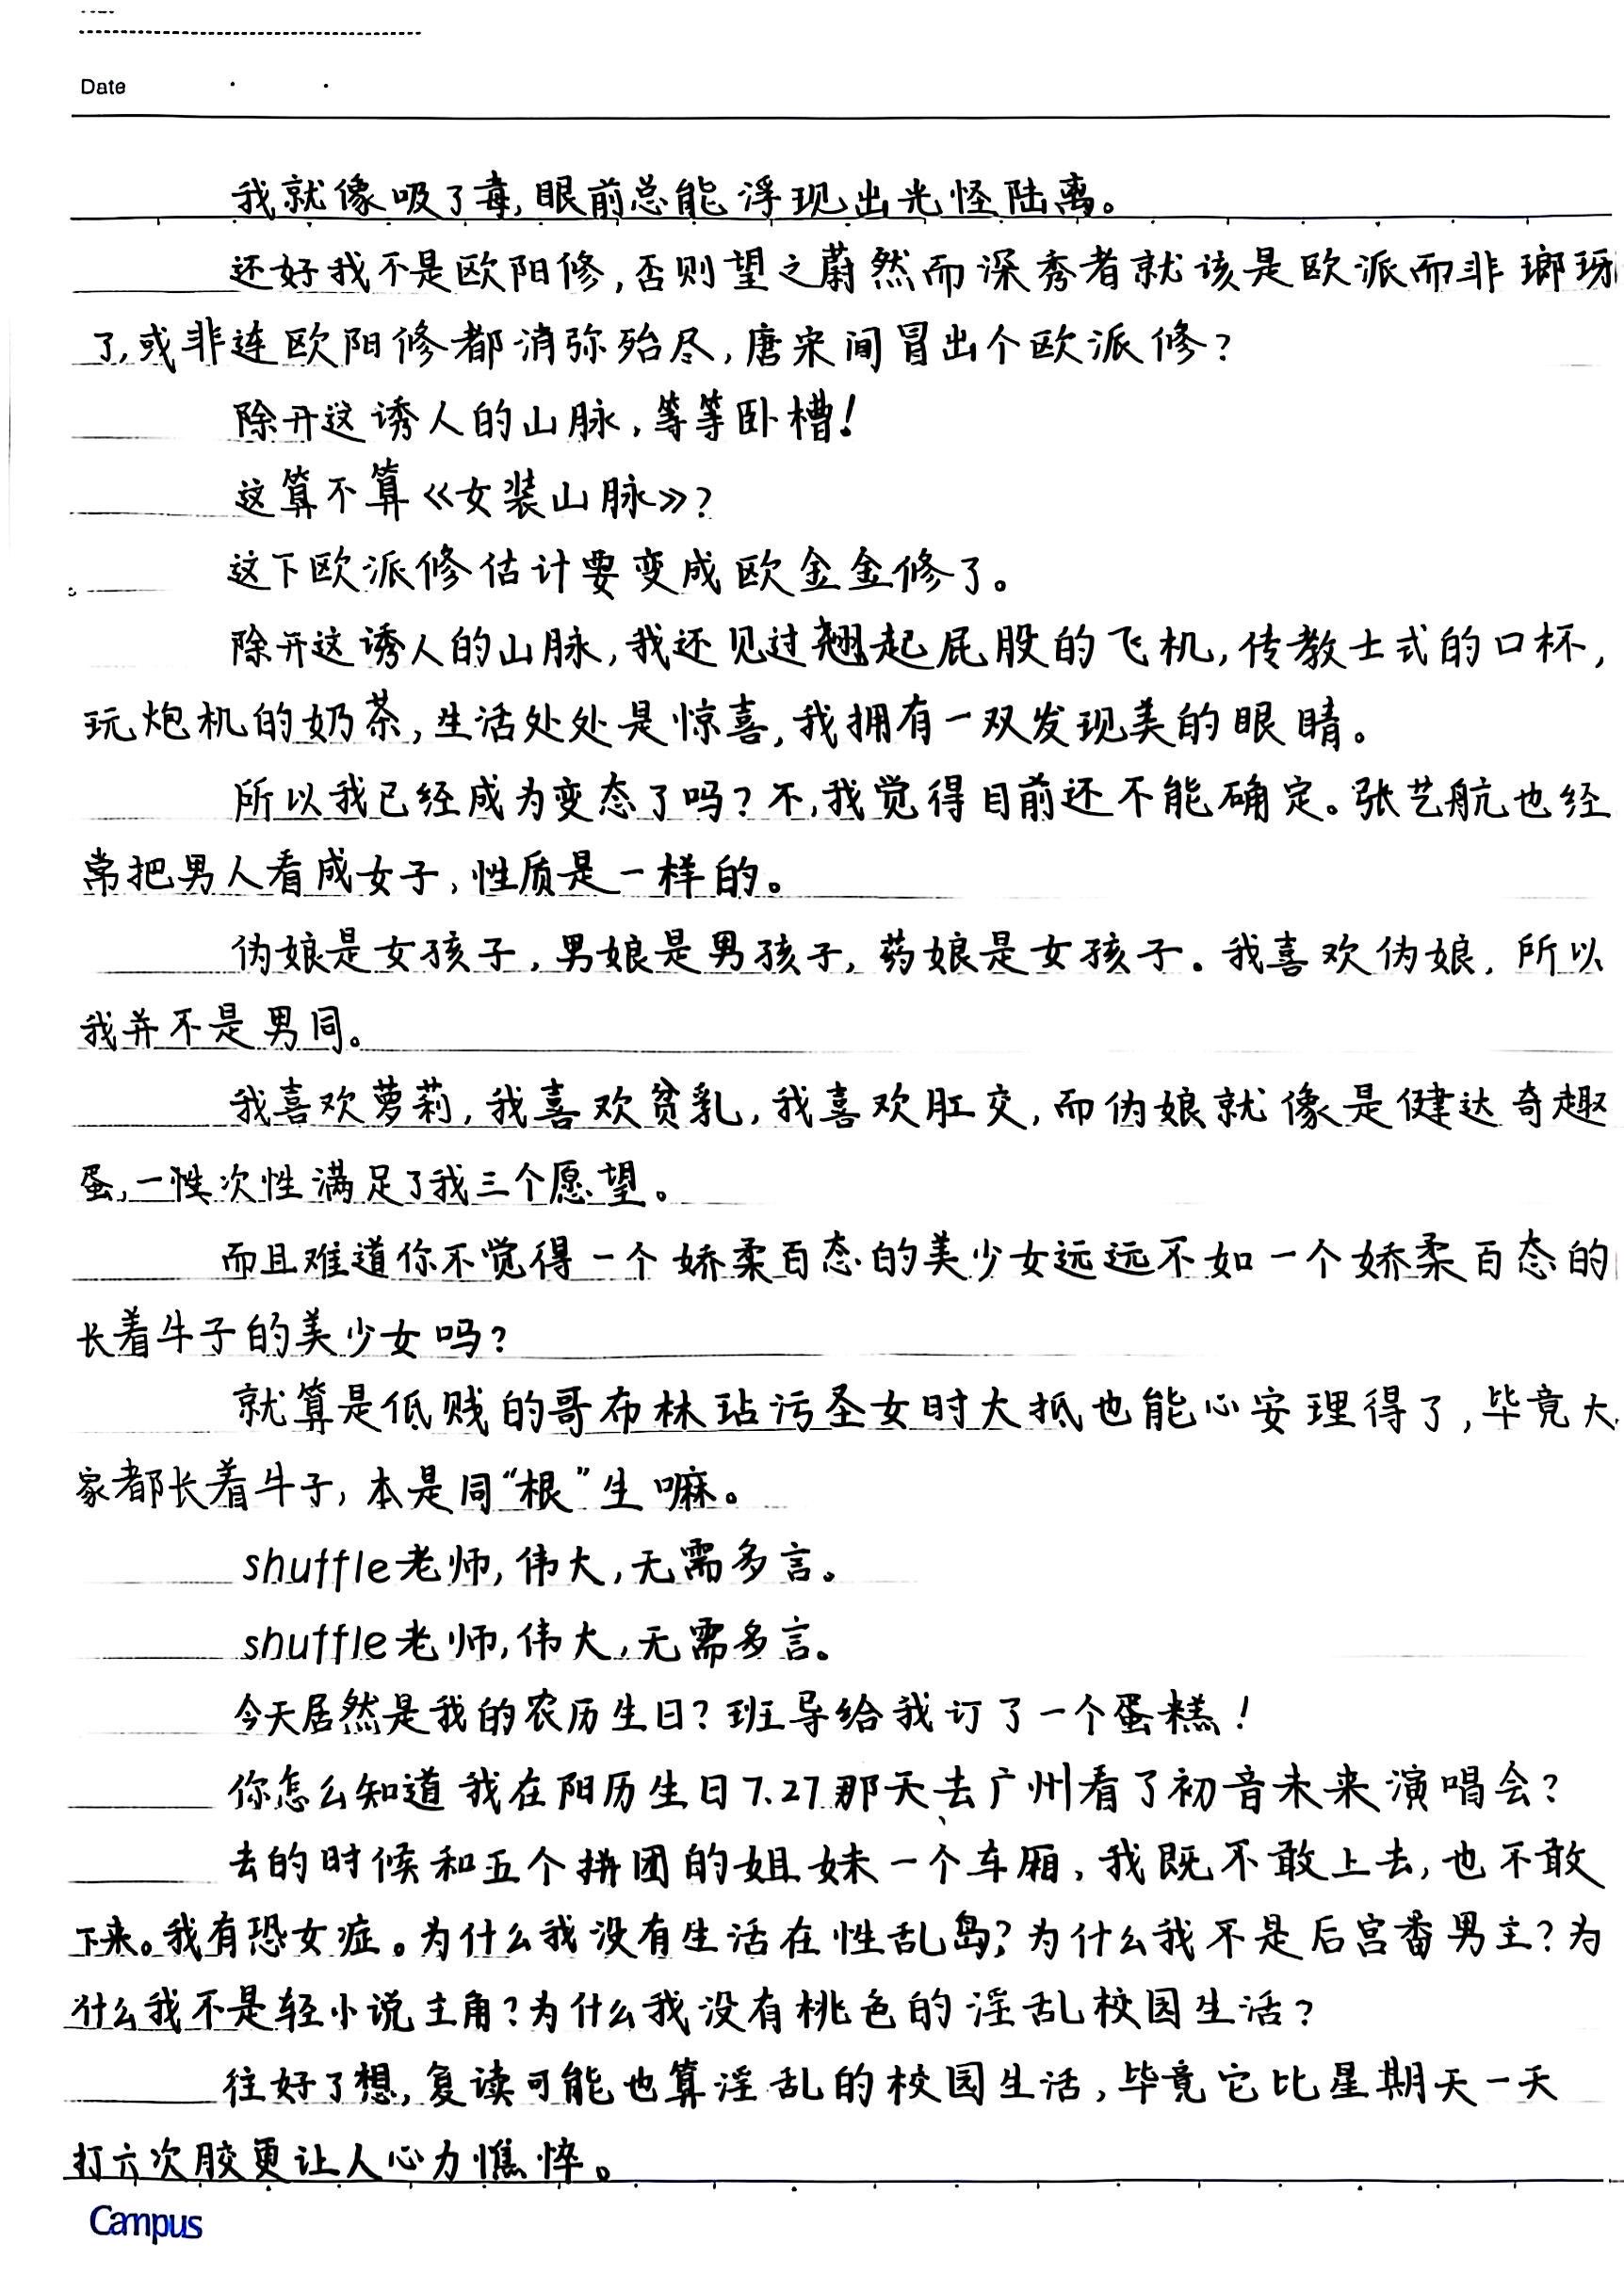 Date . .
我就像吸了毒,眼前总能浮现出光怪陆离。
还好我不是欧阳修,否则望之蔚然而深秀者就该是欧派而非瑯琊
了,或非连欧阳修都消弥殆尽,唐宋间冒出个欧派修?
除开这诱人的山脉,等等卧槽!
这算不算《女装山脉》?
这下欧派修估计要变成欧金金修了。
除开这诱人的山脉,我还见过翘起屁股的飞机,传教士式的口杯,
玩炮机的奶茶,生活处处是惊喜,我拥有一双发现美的眼睛。
所以我已经成为变态了吗?不,我觉得目前还不能确定。张艺航也经
常把男人看成女子,性质是一样的。
伪娘是女孩子,男娘是男孩子,药娘是女孩子。我喜欢伪娘,所以
我并不是男同。
我喜欢萝莉,我喜欢贫乳,我喜欢肛交,而伪娘就像是健达奇趣
蛋,一性次性满足了我三个愿望。
而且难道你不觉得一个娇柔百态的美少女远远不如一个娇柔百态的
长着牛子的美少女吗?
就算是低贱的哥布林玷污圣女时大抵也能心安理得了,毕竟大
家都长着牛子,本是同“根”生嘛。
shuffle老师,伟大,无需多言。
shuffle老师,伟大,无需多言。
今天居然是我的农历生日?班导给我订了一个蛋糕!
你怎么知道我在阳历生日7.27那天去广州看了初音未来演唱会?
去的时候和五个拼团的姐妹一个车厢,我既不敢上去,也不敢
下来。我有恐女症。为什么我没有生活在性乱岛?为什么我不是后宫番男主?为
什么我不是轻小说主角?为什么我没有桃色的淫乱校园生活?
往好了想,复读可能也算淫乱的校园生活,毕竟它比星期天一天
打六次胶更让人心力憔悴。
Campus